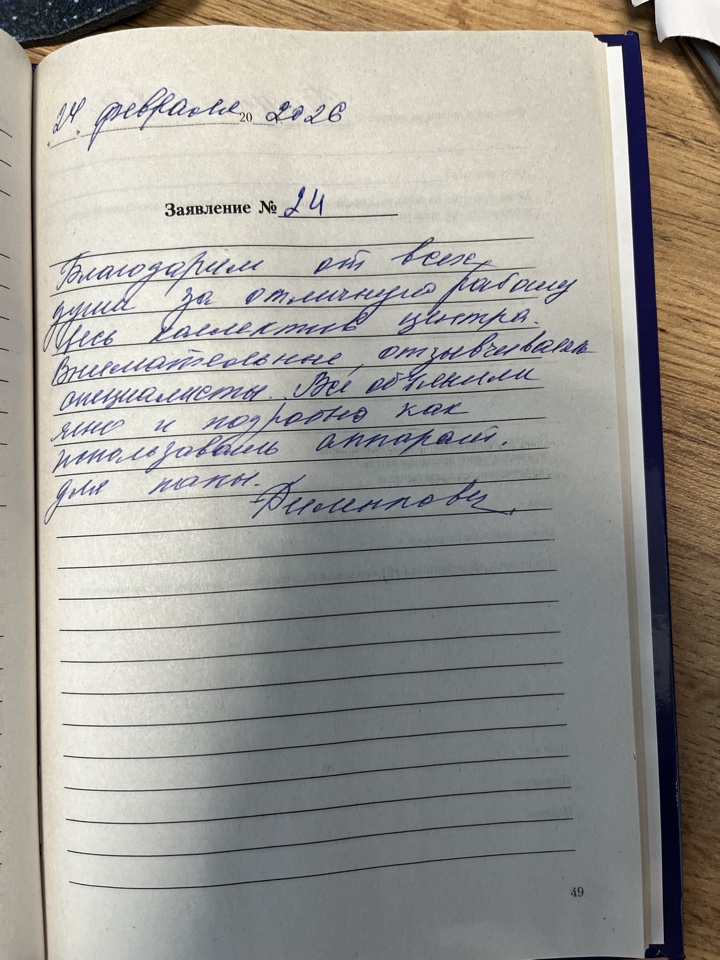 "24" февраля 20 2026
Заявление № 24
Благодарим от всех
души за отличную работу
весь коллектив центра.
Внимательные, отзывчивые
специалисты. Всё объяснили
ясно и подробно как
использовать аппарат.
для папы.
49